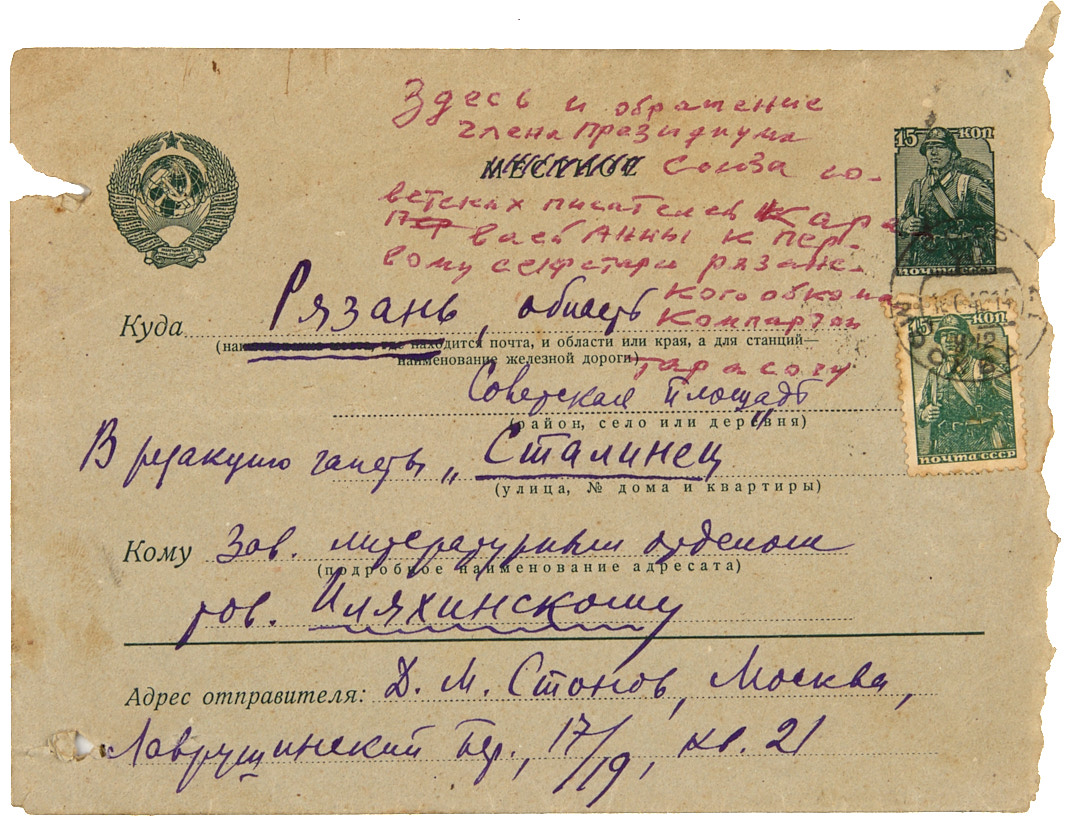 Здесь и обращение
члена Президиума
МЕСТНОЕ Союза со-
ветских писателей Кара
ваевой Анны к пер-
вому секретарю рязанс-
кого обкома
Компартии
Тарасову
15 КОП
ПОЧТА СССР
15 КОП
ПОЧТА СССР
МОСКВА
Куда Рязань, область
(наименование места, где находится почта, и области или края, а для станций—
наименование железной дороги)
Советская площадь
(район, село или деревня)
В редакцию газеты „Сталинец"
(улица, № дома и квартиры)
Кому Зав. литературным отделом
(подробное наименование адресата)
тов. Иляхинскому
Адрес отправителя: Д. М. Стонов, Москва,
Лаврушинский пер., 17/19, кв. 21